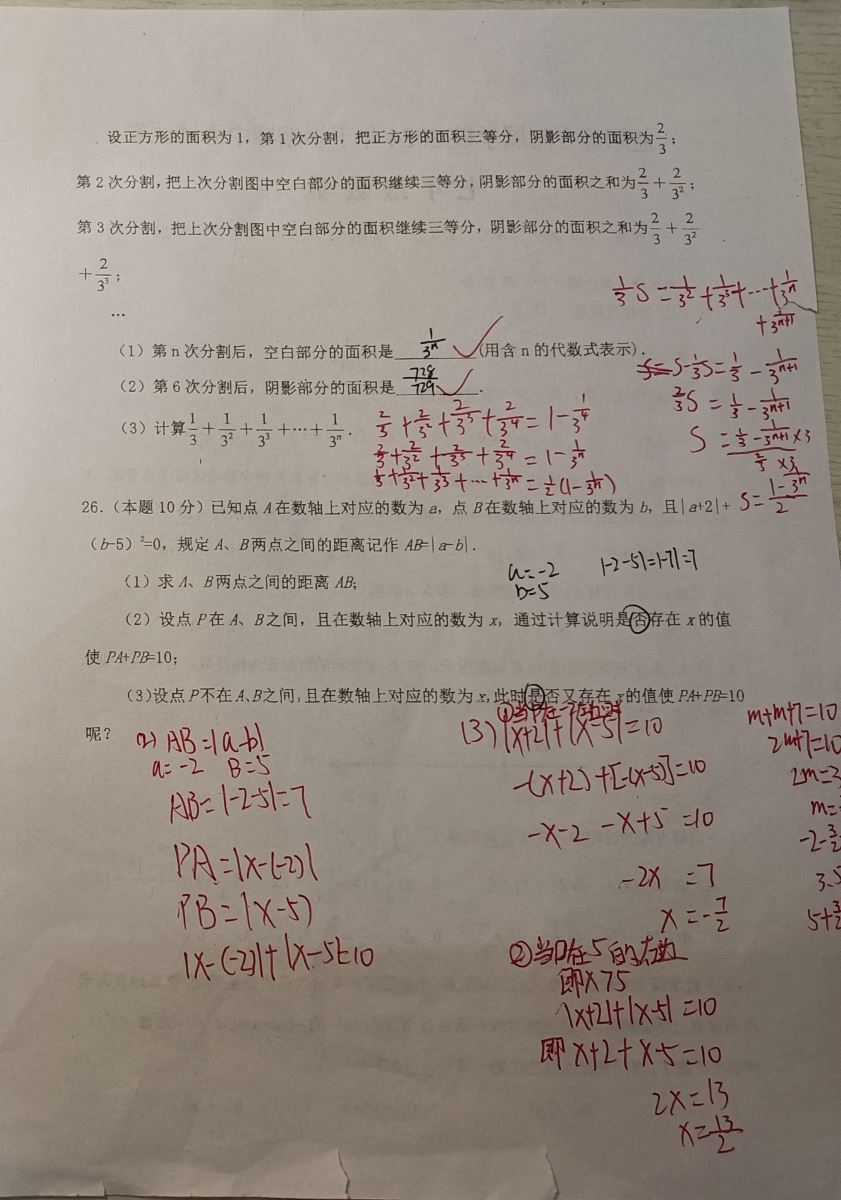 设正方形的面积为1，第1次分割，把正方形的面积三等分，阴影部分的面积为2/3；
第2次分割，把上次分割图中空白部分的面积继续三等分，阴影部分的面积之和为2/3+2/3²；
第3次分割，把上次分割图中空白部分的面积继续三等分，阴影部分的面积之和为2/3+2/3²
+2/3³；
…
1/3 S=1/3²+1/3³+…+1/3ⁿ
+1/3ⁿ⁺¹
（1）第n次分割后，空白部分的面积是 1/3ⁿ (用含n的代数式表示).
（2）第6次分割后，阴影部分的面积是 728/729 .
S-1/3S=1/3-1/3ⁿ⁺¹
2/3S=1/3-1/3ⁿ⁺¹
（3）计算1/3+1/3²+1/3³+…+1/3ⁿ.
2/3+2/3²+2/3³+2/3⁴=1-1/3⁴
2/3+2/3²+2/3³+2/3⁴=1-1/3ⁿ
1/3+1/3²+1/3³+…+1/3ⁿ=1/2(1-1/3ⁿ)
S=(1/3-1/3ⁿ⁺¹×3)/(2/3×3)
S=(1-1/3ⁿ)/2
26.（本题10分）已知点A在数轴上对应的数为a，点B在数轴上对应的数为b，且|a+2|+
(b-5)²=0，规定A、B两点之间的距离记作AB=|a-b|.
（1）求A、B两点之间的距离AB；
a=-2
b=5
|-2-5|=|-7|=7
（2）设点P在A、B之间，且在数轴上对应的数为x，通过计算说明是否存在x的值
使PA+PB=10；
（3）设点P不在A、B之间，且在数轴上对应的数为x，此时是否又存在x的值使PA+PB=10
呢？
AB=|a-b|
a=-2 B=5
AB=|-2-5|=7
PA=|x-(-2)|
PB=|x-5)
|x-(-2)|+|x-5|=10
(3)|x+2|+|x-5|=10
-(x+2)+[-(x-5)]=10
-x-2-x+5=10
-2x=7
x=-7/2
②当P在5的右边
即x>5
|x+2|+|x-5|=10
即x+2+x-5=10
2x=13
x=13/2
m+m+7=10
2m+7=10
2m=3
m=